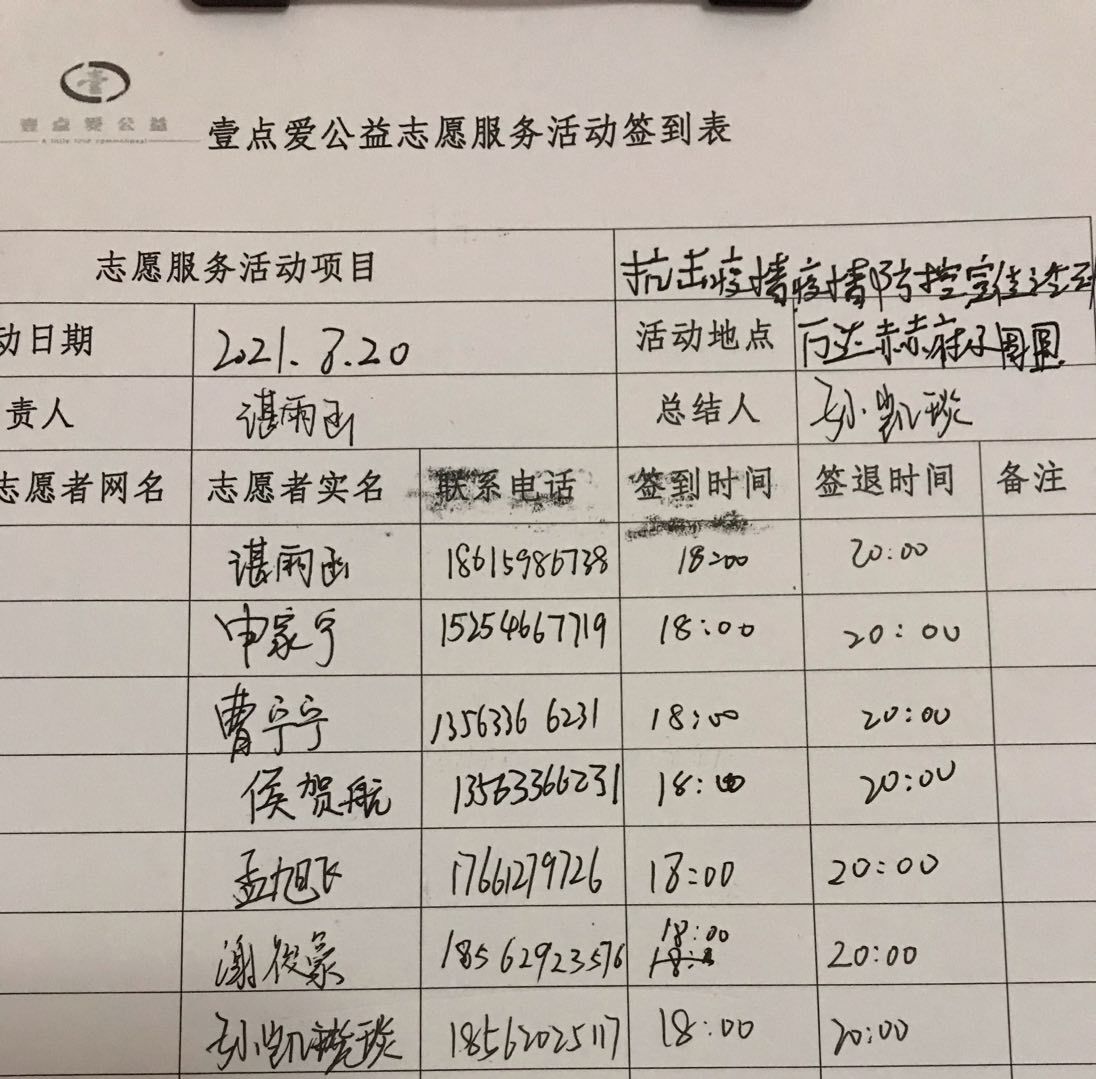 壹点爱公益
壹点爱公益志愿服务活动签到表
志愿服务活动项目 抗击疫情疫情防控宣传
动日期 2021.8.20 活动地点 万达赤赤府子周围
责人 谌雨函 总结人 孙凯琰
志愿者网名 志愿者实名 联系电话 签到时间 签退时间 备注
谌雨函 18615986738 18:00 20:00
申家宁 15254667719 18:00 20:00
曹宁宁 13563366231 18:00 20:00
侯贺航 13563366231 18:00 20:00
孟旭飞 17661279726 18:00 20:00
谢俊豪 18562923576 18:00 20:00
孙凯琰 18562025117 18:00 20:00